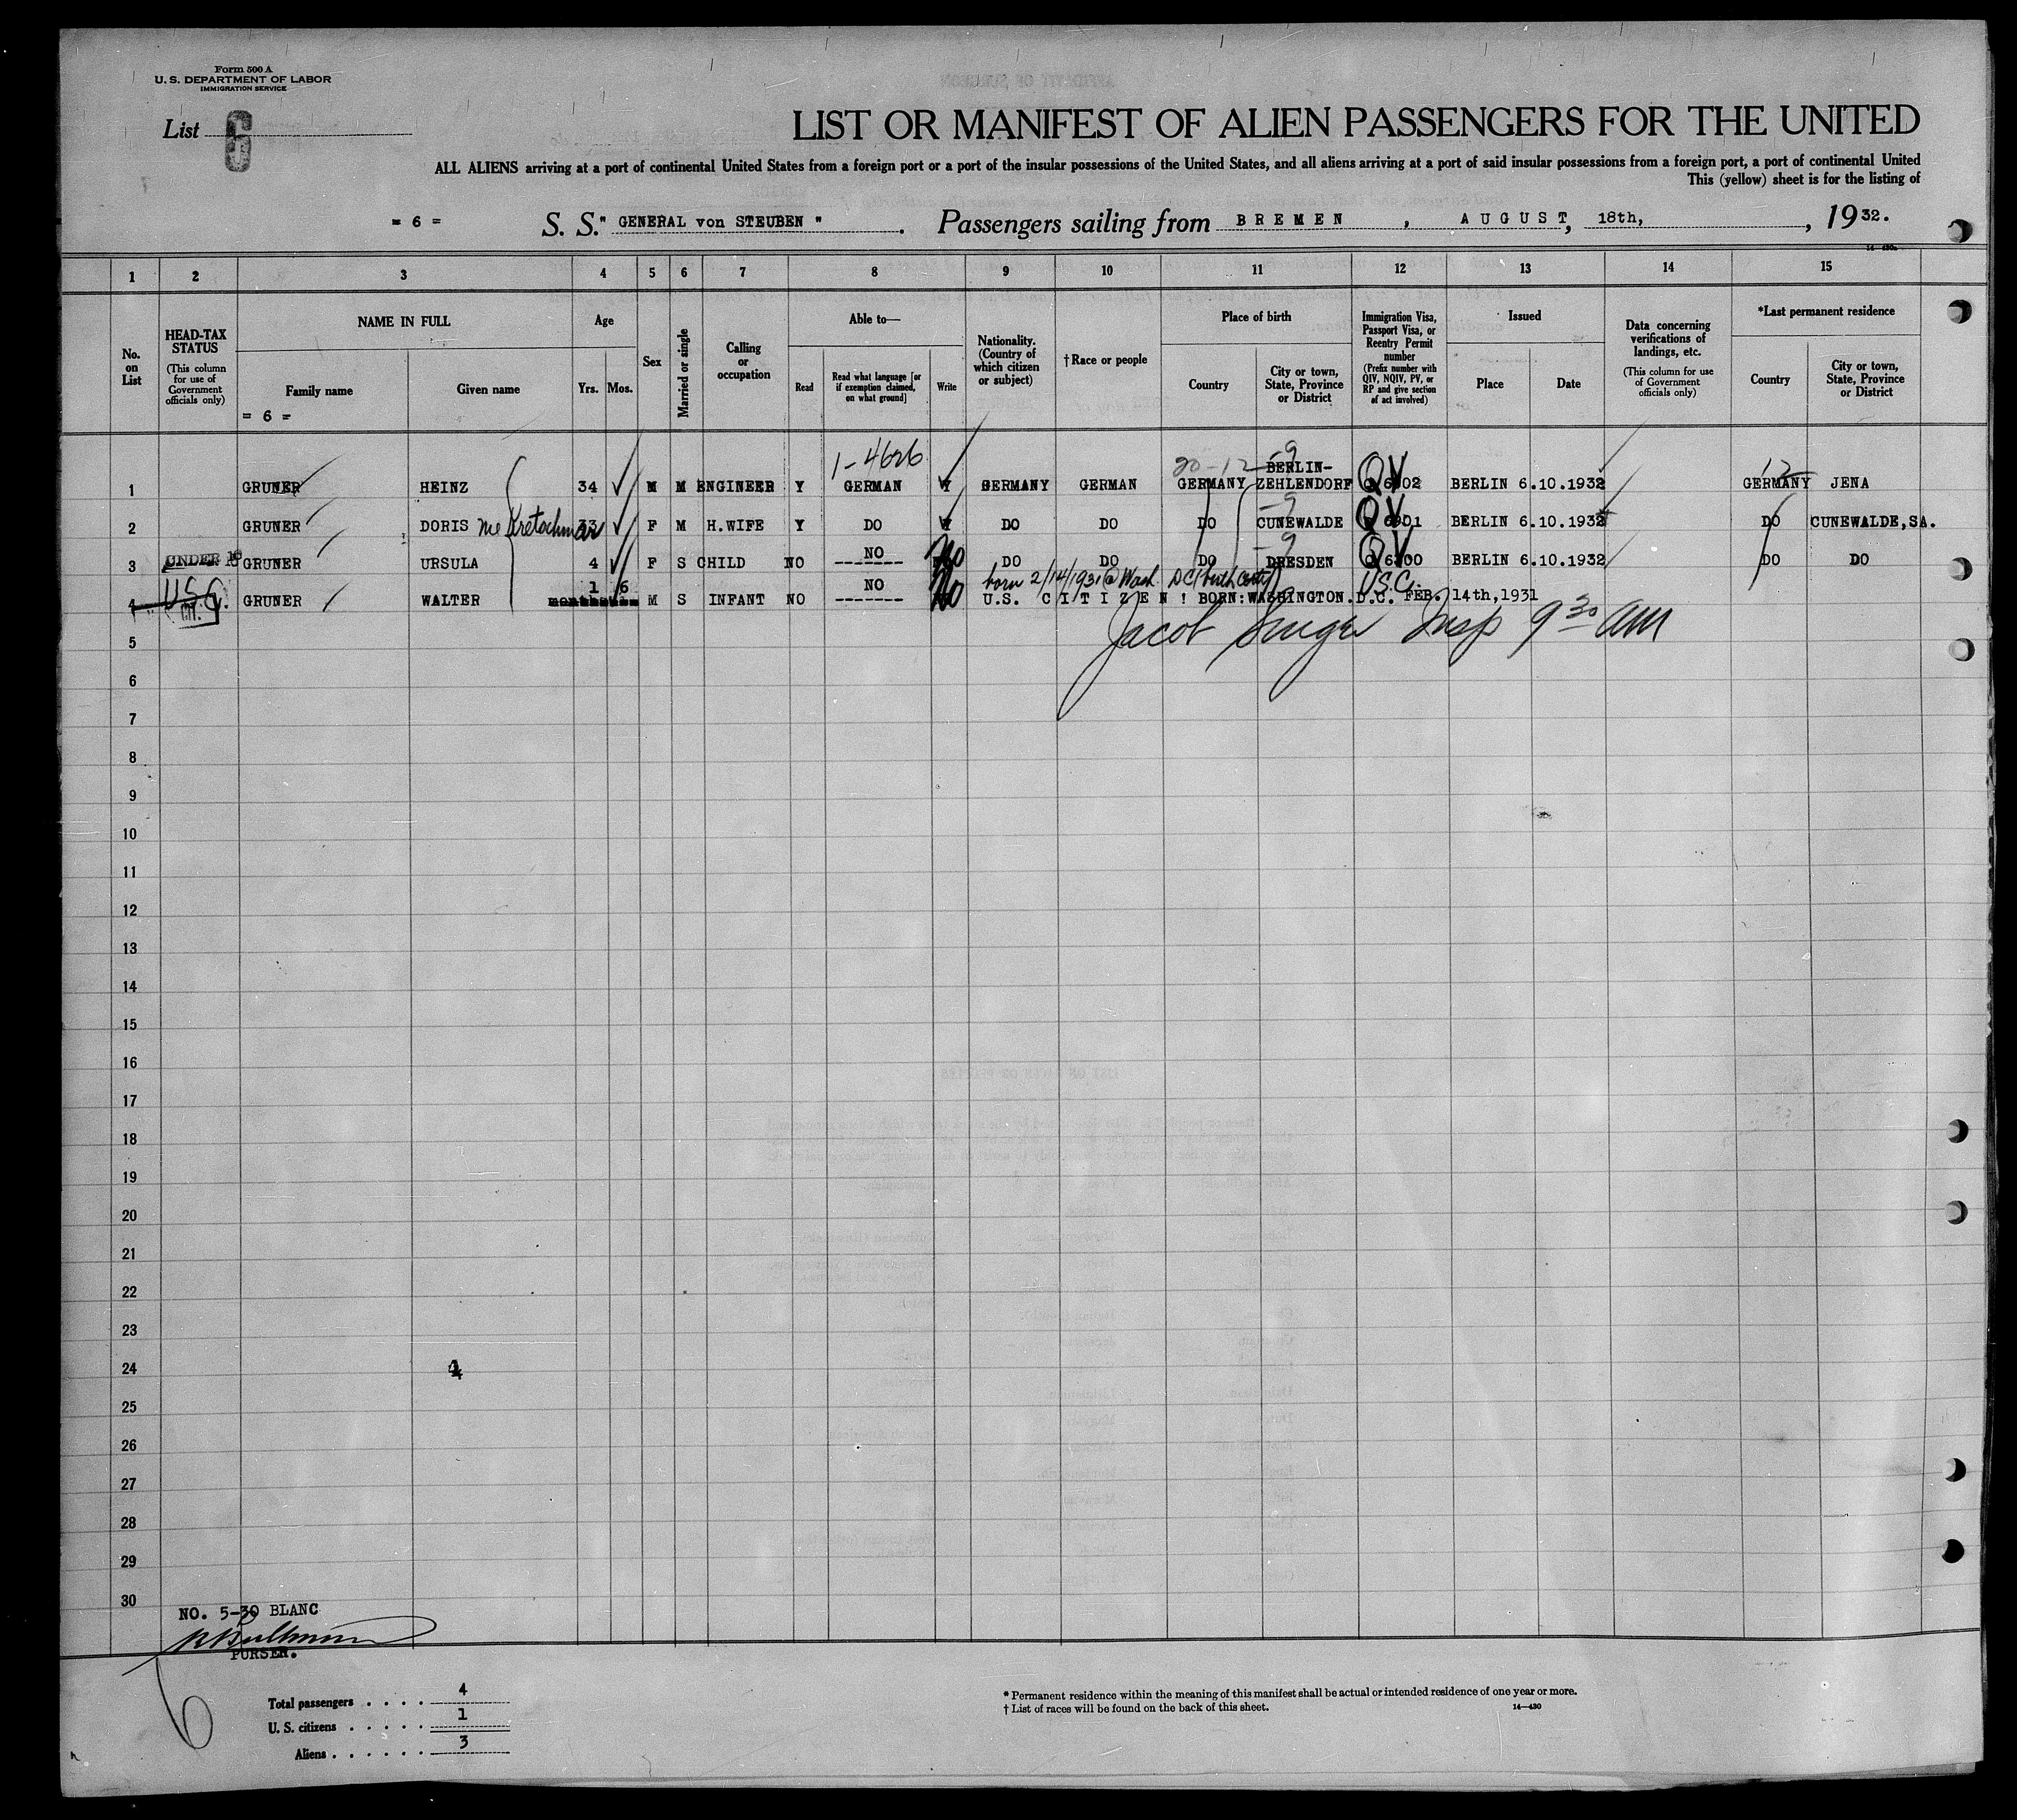 Form 500 A
U. S. DEPARTMENT OF LABOR
IMMIGRATION SERVICE
List 6
LIST OR MANIFEST OF ALIEN PASSENGERS FOR THE UNITED
ALL ALIENS arriving at a port of continental United States from a foreign port or a port of the insular possessions of the United States, and all aliens arriving at a port of said insular possessions from a foreign port, a port of continental United
This (yellow) sheet is for the listing of
= 6 = S. S. " GENERAL von STEUBEN " . Passengers sailing from BREMEN , AUGUST, 18th, , 19 32.
14—430a
1 2 3 4 5 6 7 8 9 10 11 12 13 14 15
No. on List
HEAD-TAX STATUS (This column for use of Government officials only)
NAME IN FULL
Family name
= 6 =
Given name
Age
Yrs. Mos.
Sex
Married or single
Calling or occupation
Able to—
Read
Read what language [or if exemption claimed, on what ground]
Write
Nationality. (Country of which citizen or subject)
† Race or people
Place of birth
Country
City or town, State, Province or District
Immigration Visa, Passport Visa, or Reentry Permit number (Prefix number with QIV, NQIV, PV, or RP and give section of act involved)
Issued
Place
Date
Data concerning verifications of landings, etc. (This column for use of Government officials only)
*Last permanent residence
Country
City or town, State, Province or District
1-4626 20-12-9 12
1 GRUNER HEINZ 34 M M ENGINEER Y GERMAN Y GERMANY GERMAN GERMANY BERLIN-ZEHLENDORF QV 6902 BERLIN 6.10.1932 GERMANY JENA
-9
2 GRUNER DORIS née Kretschmar 33 F M H.WIFE Y DO Y DO DO DO CUNEWALDE QV 6901 BERLIN 6.10.1932 DO CUNEWALDE,SA.
-9
3 UNDER 16 GRUNER URSULA 4 F S CHILD NO NO ------- No DO DO DO DRESDEN QV 6900 BERLIN 6.10.1932 DO DO
born 2/14/1931 @ Wash. DC (birth Certf) U.S.C.
4 U.S.C. GRUNER WALTER 1 6 M S INFANT NO NO ------- No U.S. CITIZEN ! BORN:WASHINGTON.D.C. FEB. 14th,1931
Jacob Singer Insp 9 30 AM
5
6
7
8
9
10
11
12
13
14
15
16
17
18
19
20
21
22
23
24
4
25
26
27
28
29
30
NO. 5-30 BLANC
PURSER.
6
Total passengers . . . . 4
U. S. citizens . . . . . 1
Aliens . . . . . . 3
* Permanent residence within the meaning of this manifest shall be actual or intended residence of one year or more.
† List of races will be found on the back of this sheet.
14—430